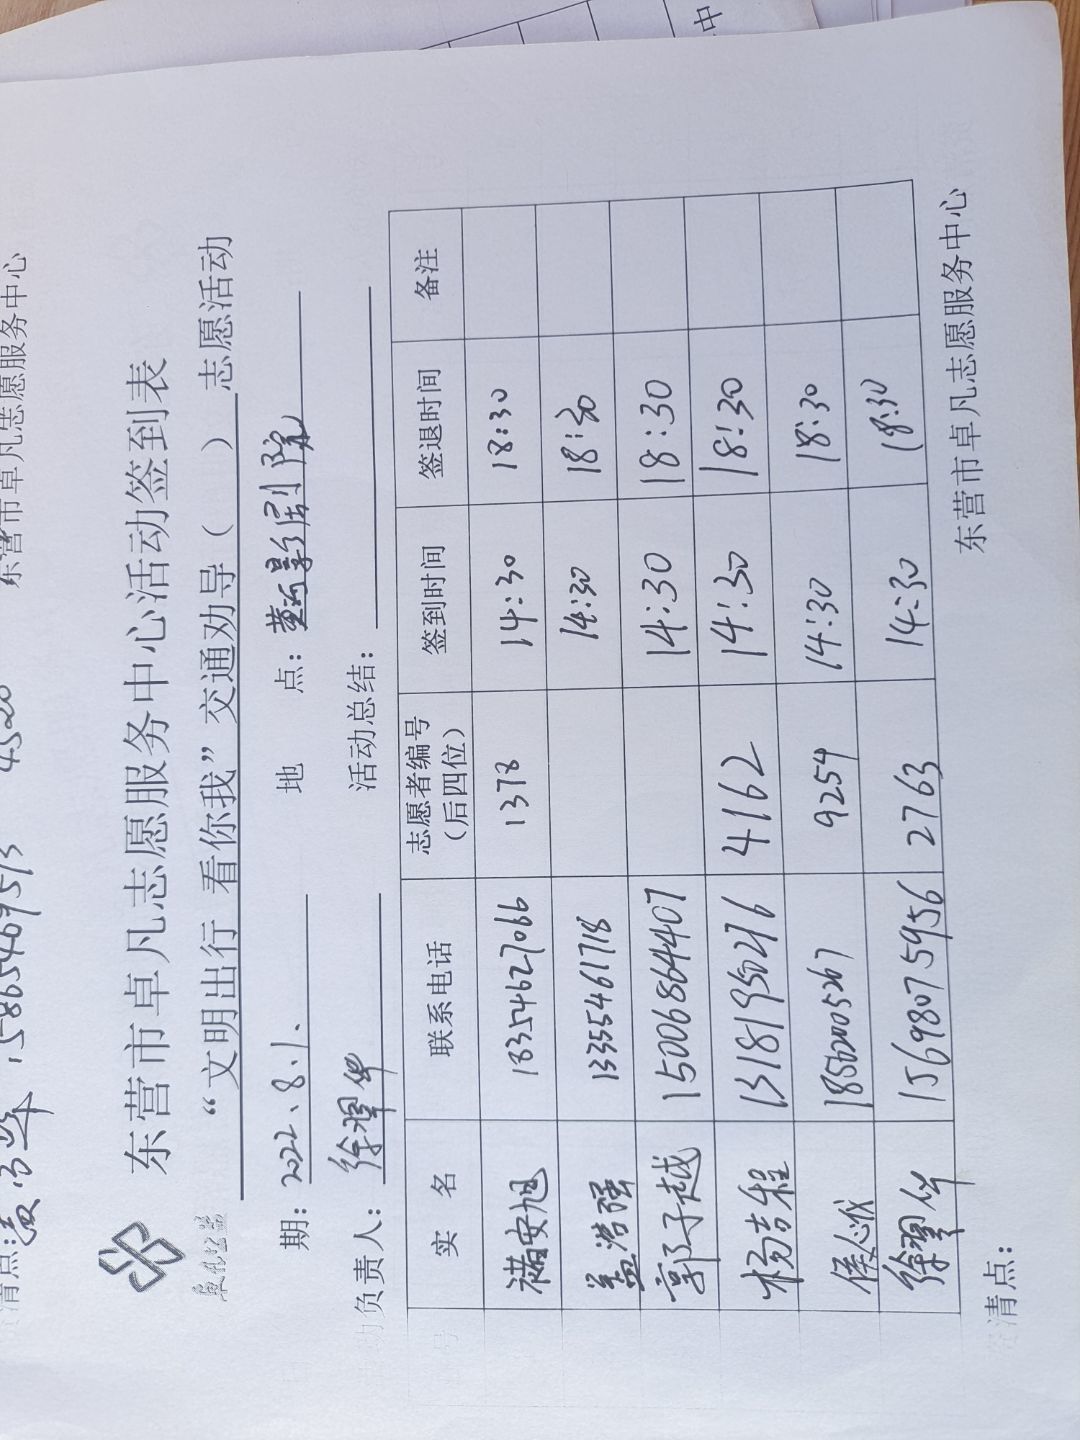 东营市卓凡志愿服务中心
15865469513 4520
清点：
东营市卓凡志愿服务中心活动签到表
“文明出行 看你我”交通劝导（ ）志愿活动
期：2022.8.1. 地 点：黄河影剧院
负责人：徐翠华 活动总结：
号 实 名 联系电话 志愿者编号（后四位） 签到时间 签退时间 备注
褚安旭 18354627066 1378 14:30 18:30
盖浩强 13355461718 14:30 18:30
郭子越 15006864407 14:30 18:30
杨吉程 13181950276 4162 14:30 18:30
侯 185620005267 9254 14:30 18:30
徐翠华 15698075956 2763 14:30 18:30
清点： 东营市卓凡志愿服务中心
中